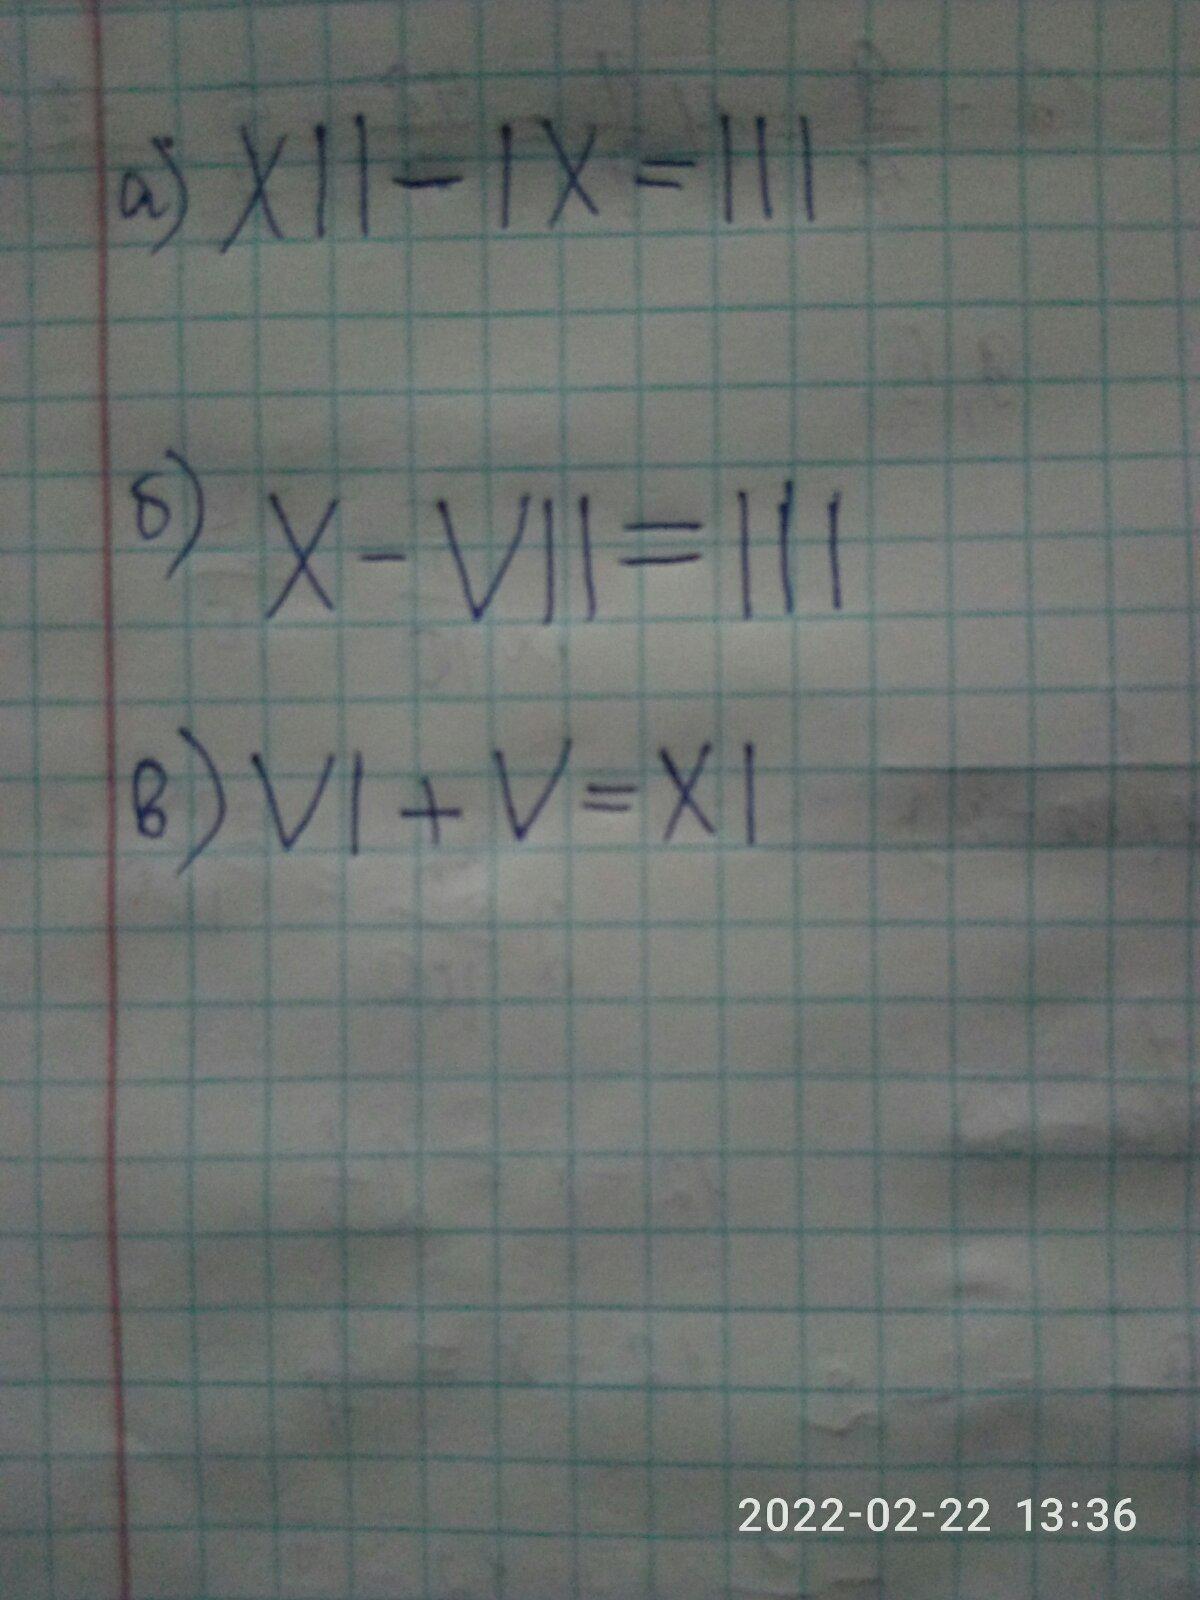 а) XII - IX = III
б) X - VII = III
в) VI + V = XI
2022-02-22 13:36